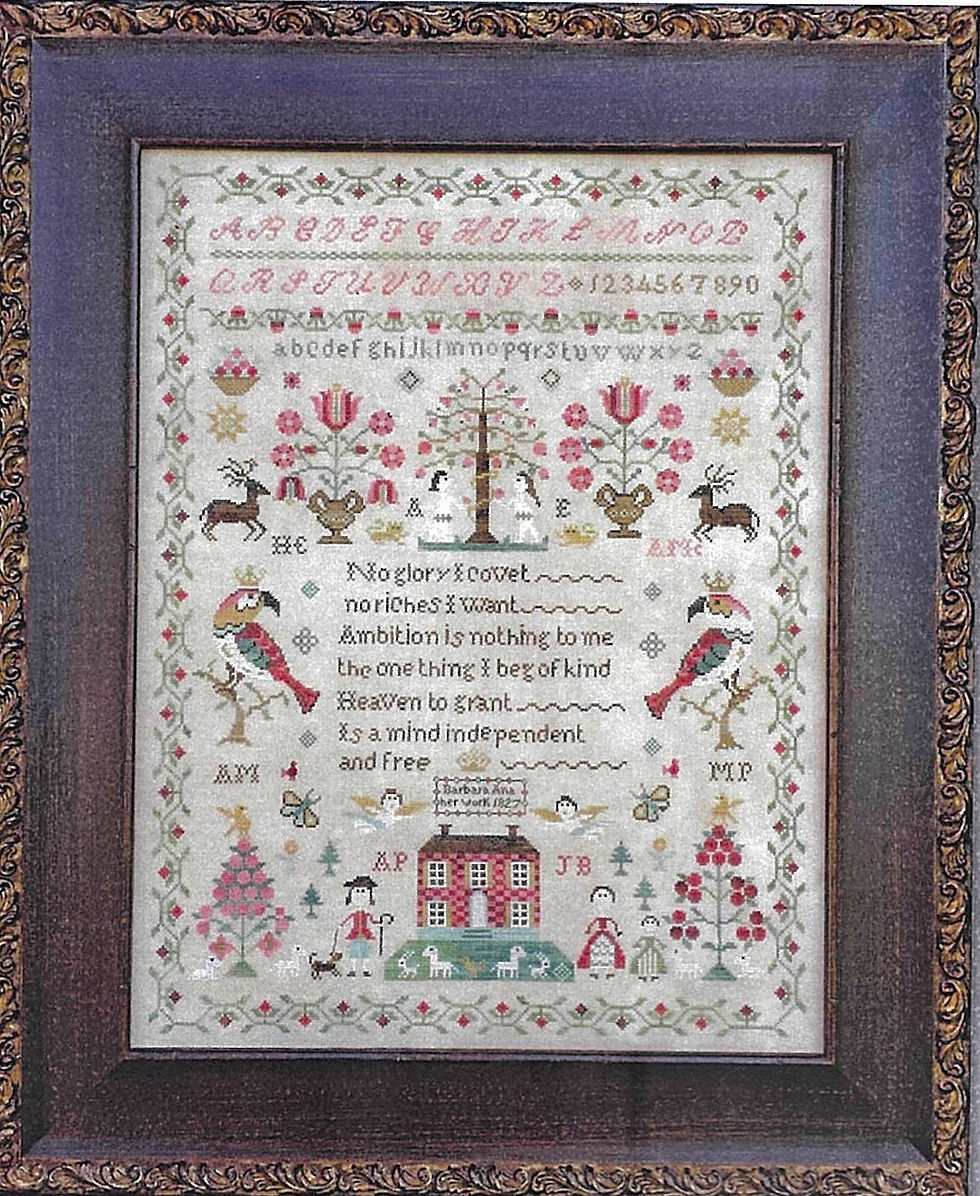 A B C D E F G H I K L M N O P
Q R S T U V W X Y Z 1 2 3 4 5 6 7 8 9 0
a b c d e f g h i j k l m n o p q r s t u v w x y z
A E
HC AMC
No glory I covet
no riches I want
Ambition is nothing to me
the one thing I beg of kind
Heaven to grant
Is a mind independent
and free
AM MP
Barbara Ana
her work 1827
AP JB